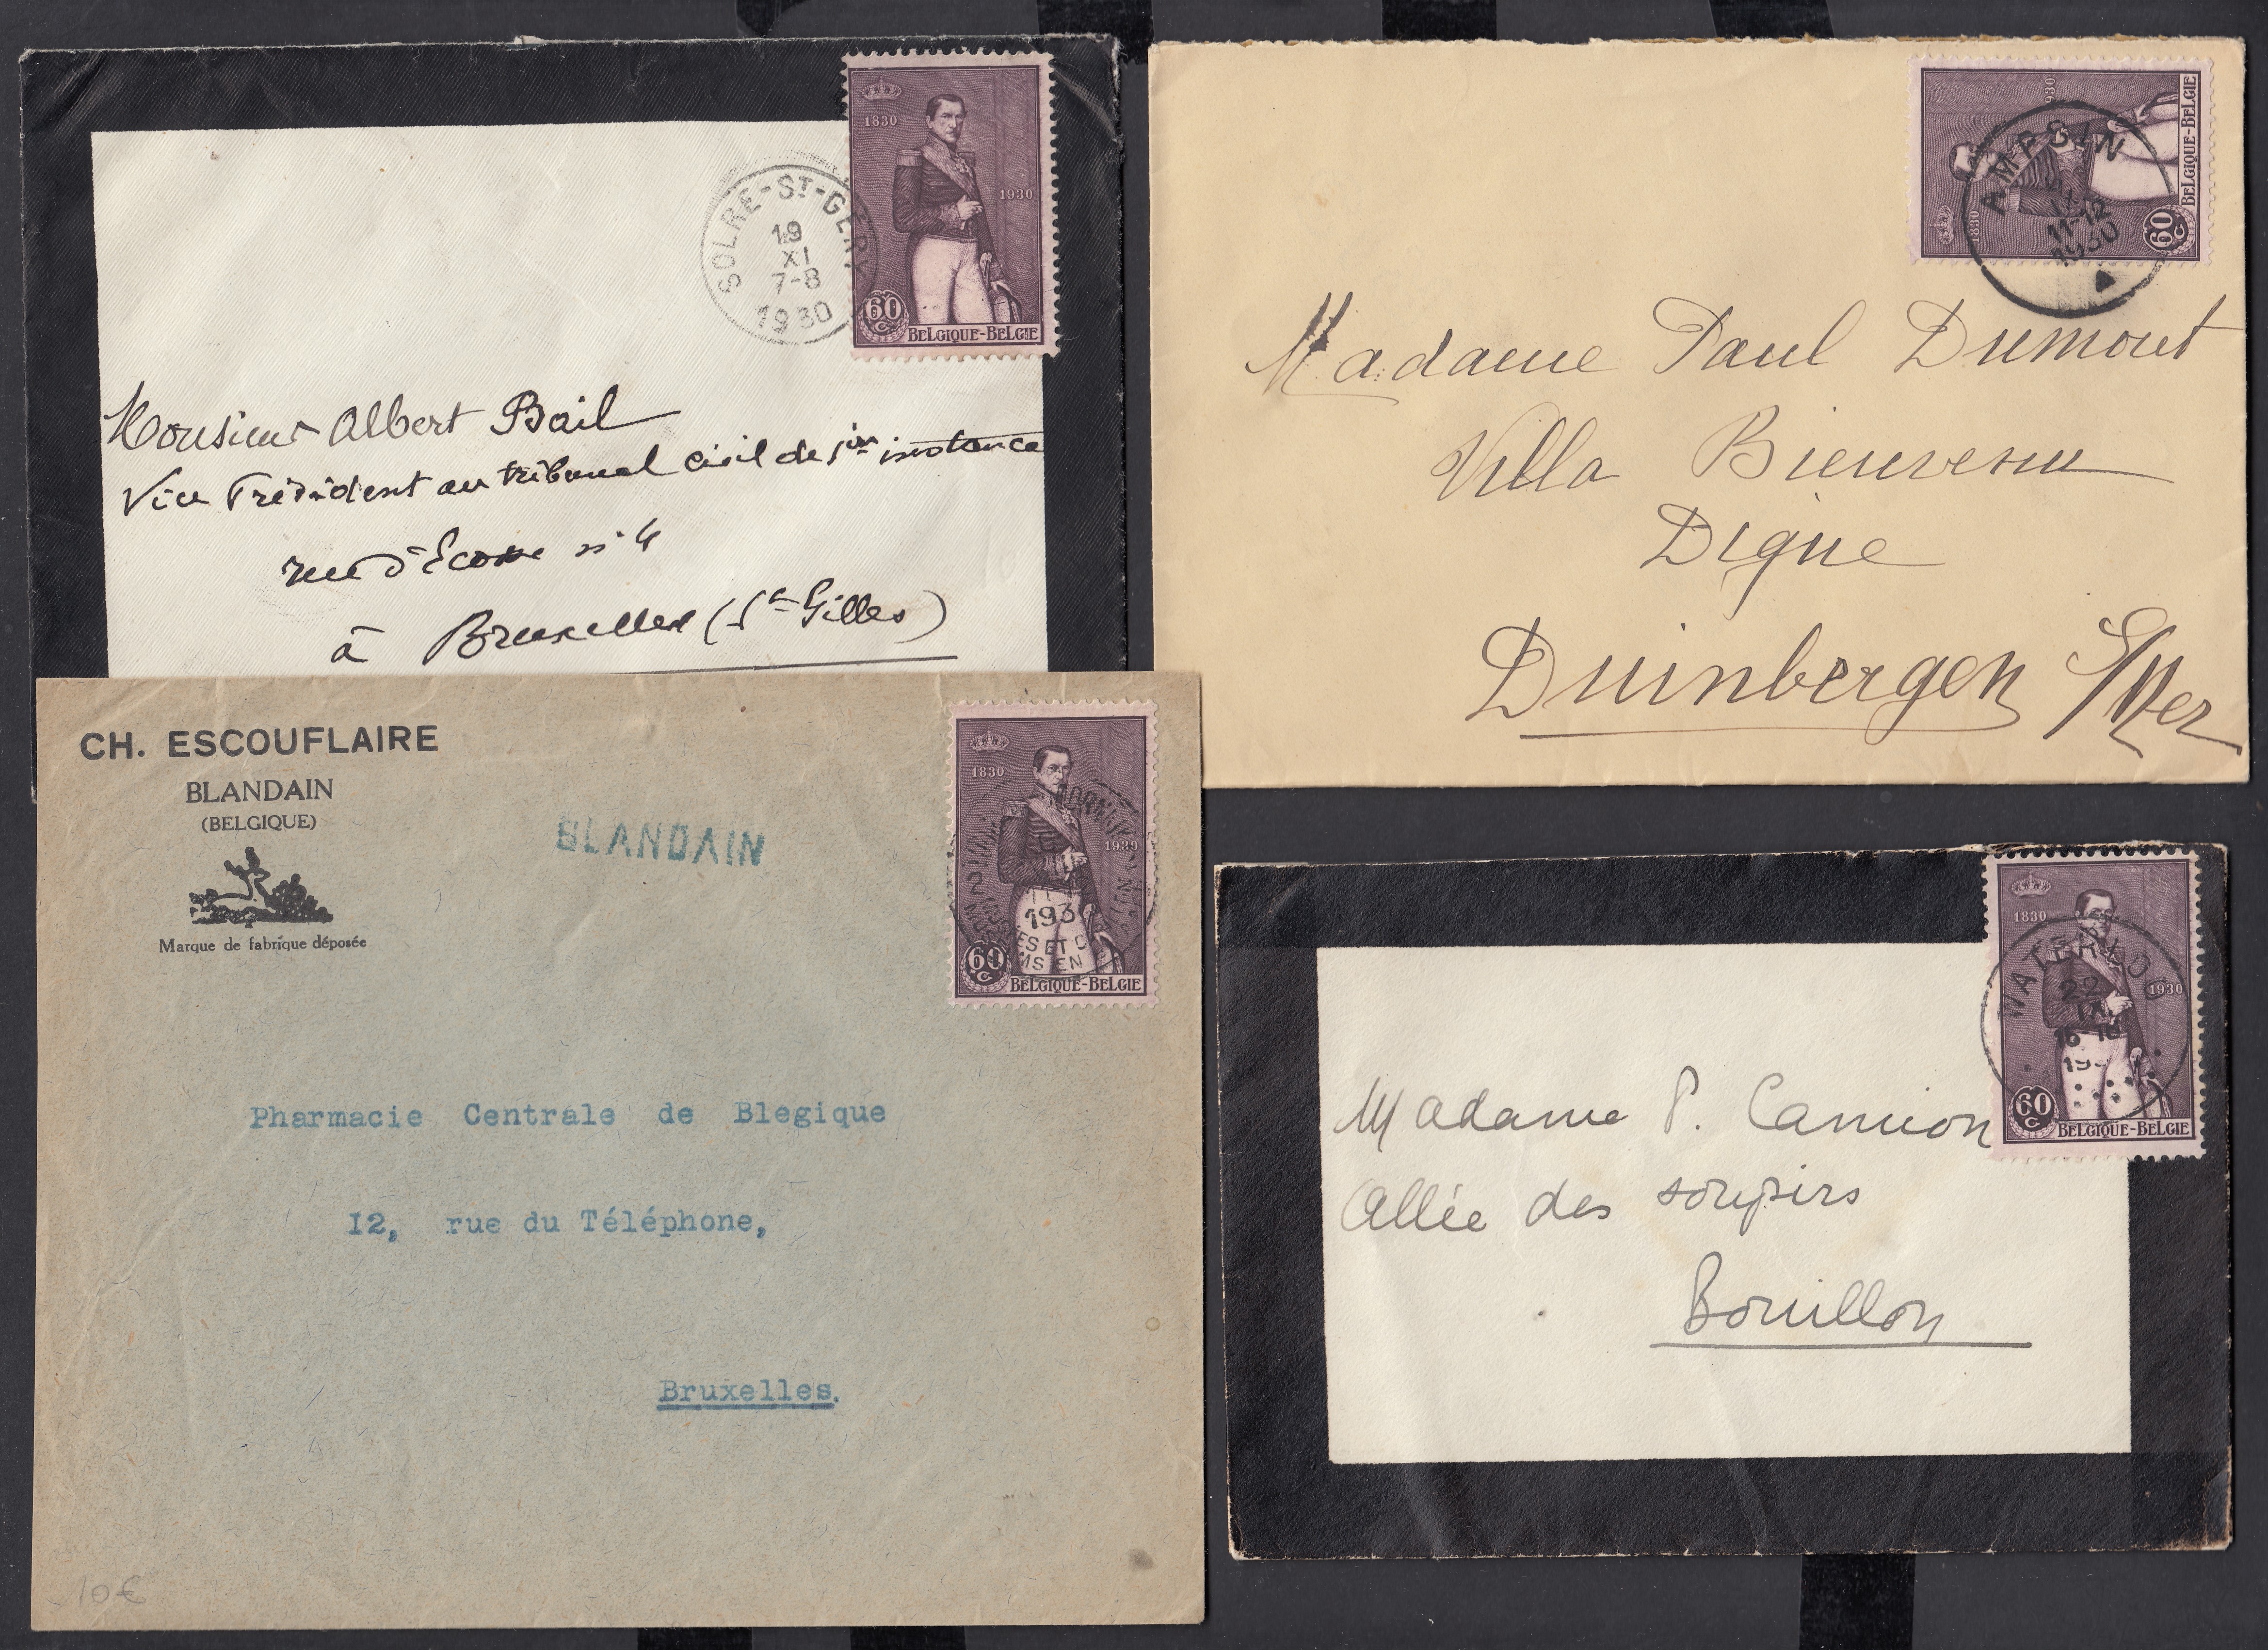 1830
1930
60
C
BELGIQUE-BELGIE
SOLRE-ST-GERY
19
XI
7-8
1930
Monsieur Albert Bail
Vice Président au tribunal civil de 1ière instance
rue d'Ecosse n° 4
à Bruxelles (St Gilles)
1830
1930
60
C
BELGIQUE-BELGIE
AMPSIN
IX
11-12
1930
Madame Paul Dumont
Villa Bienvenu
Digue
Duinbergen S/Mer
CH. ESCOUFLAIRE
BLANDAIN
(BELGIQUE)
Marque de fabrique déposée
BLANDAIN
1830
1930
60
C
BELGIQUE-BELGIE
DORNIJK
2
193
MUSÉES ET
EN
Pharmacie Centrale de Blegique
12, rue du Téléphone,
Bruxelles.
10€
1830
1930
60
C
BELGIQUE-BELGIE
WATERLOO
22
IX
19
Madame P. Camion
Allée des soupirs
Bouillon